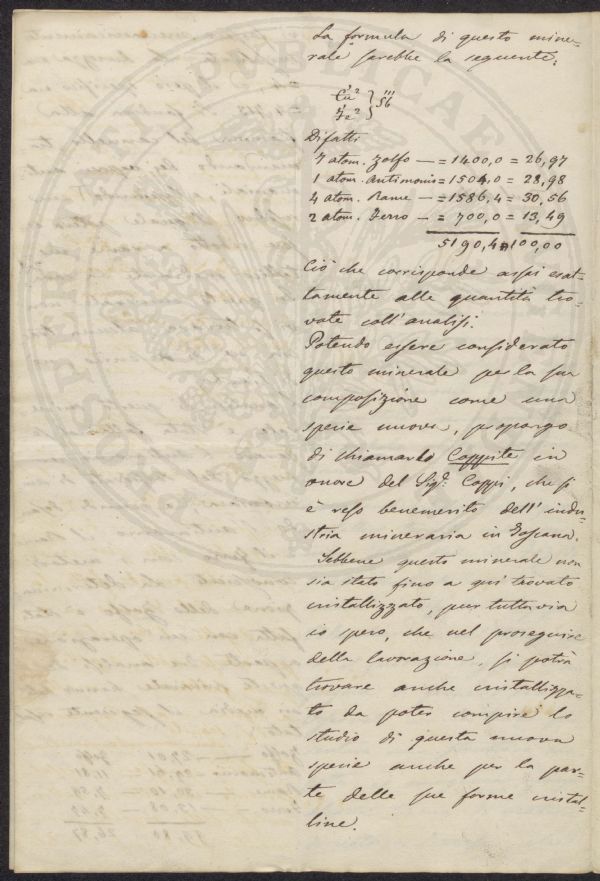 La formula di questo mine-
rale sarebbe la seguente:
Cu² } Sb'''
Fe²
Difatti
7 atom. Zolfo — = 1400,0 = 26,97
1 atom. Antimonio = 1504,0 = 28,98
4 atom. Rame — = 1586,4 = 30,56
2 atom. Ferro — = 700,0 = 13,49
5190,4 = 100,00
Ciò che corrisponde assai esat-
tamente alle quantità tro-
vate coll'analisi.
Potendo essere considerato
questo minerale per la sua
composizione come una
specie nuova, propongo
di chiamarlo Coppite in
onore del Sigʳ. Coppi, che si
è reso benemerito dell'indu-
stria mineraria in Toscana.
Sebbene questo minerale non
sia stato fino a qui trovato
cristallizzato, pur tuttavia
io spero, che nel proseguire
della lavorazione, si potrà
trovare anche cristallizza-
to da poter compire lo
studio di questa nuova
specie anche per la par-
te delle sue forme cristal-
line.